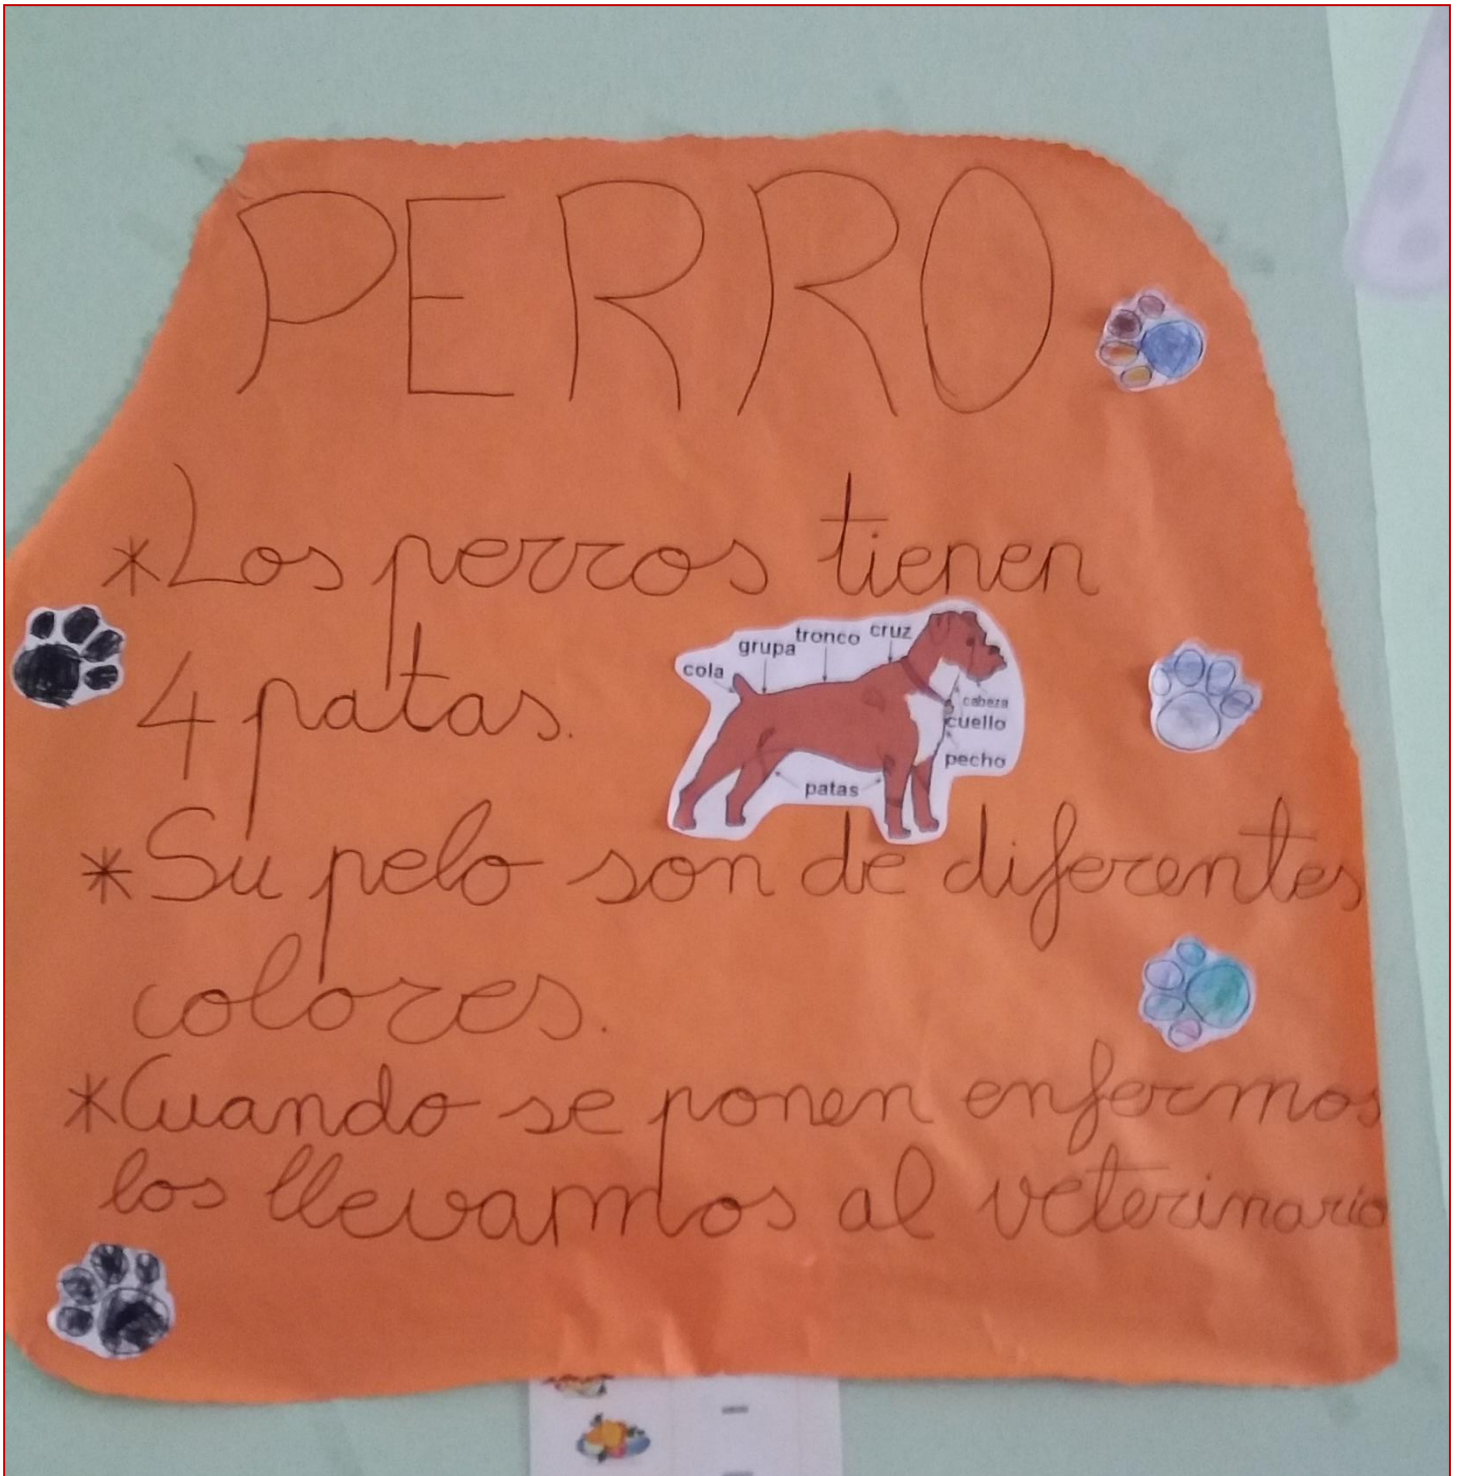 PERRO
*Los perros tienen
4 patas.
cola grupa tronco cruz
cabeza
cuello
pecho
patas
*Su pelo son de diferentes
colores.
*Cuando se ponen enfermos
los llevamos al veterinario